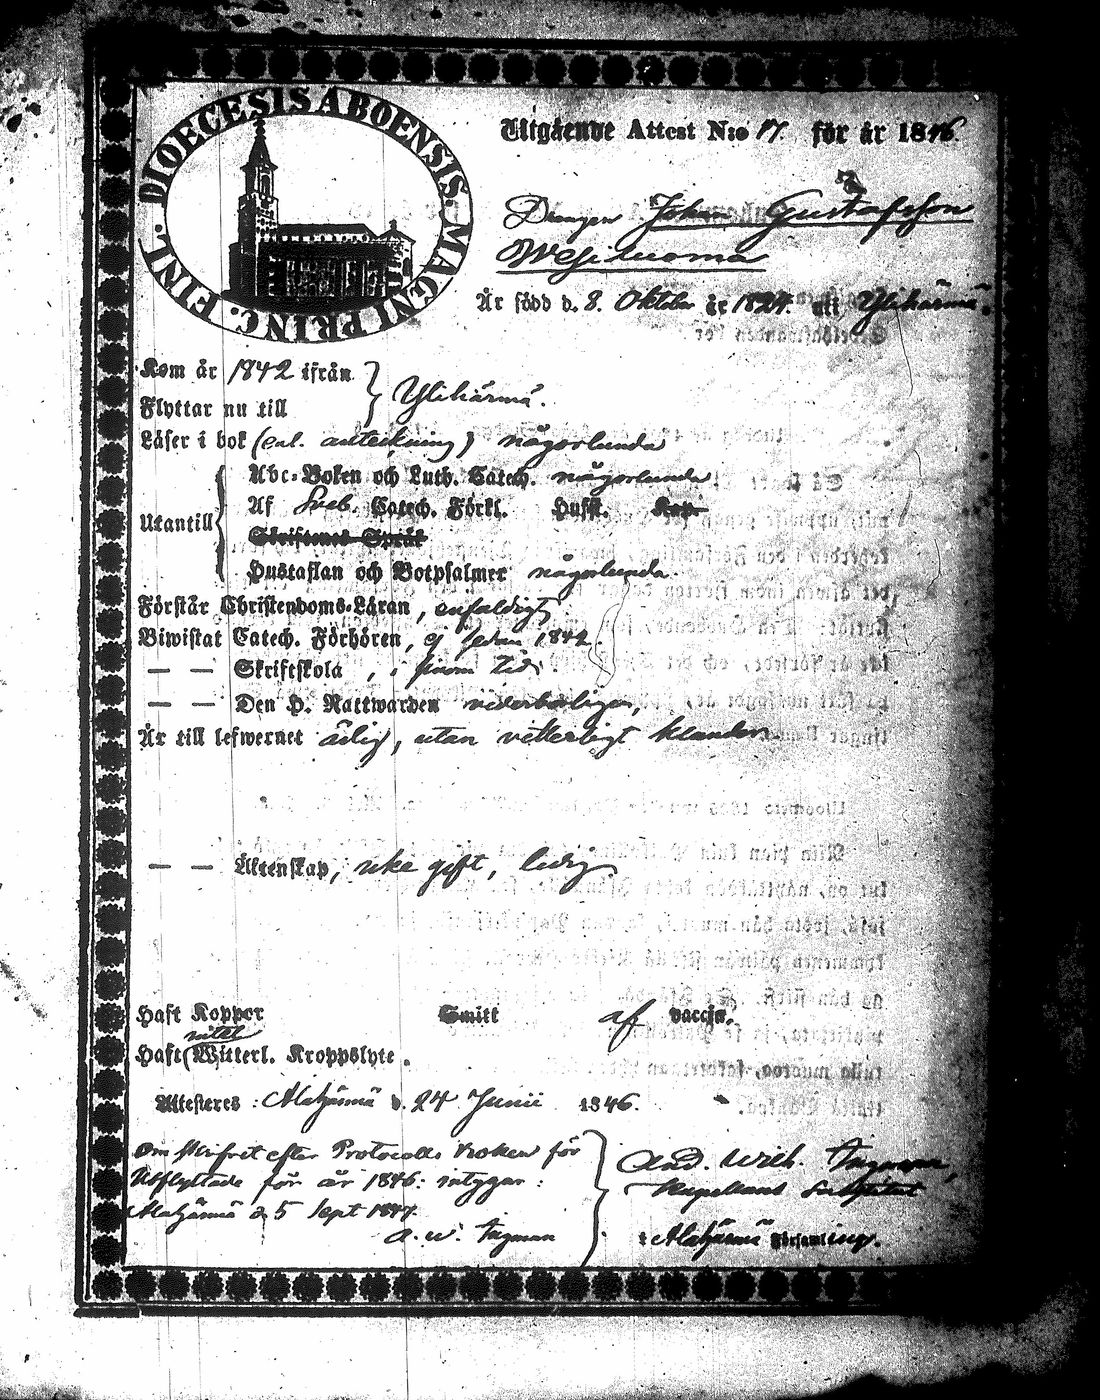 DIOECESIS ABOENSIS. MAGNI PRINC. FINL.
Utgående Attest N:o 17. för år 1846.
Drengen Johan Gustafsson
Wesiluoma
Är född d. 8. Oktober år 1824. uti Ylihärmä.
Kom år 1842 ifrån
Flyttar nu till
Ylihärmä.
Läser i bok (enl. anteckning) någorlunda
Utantill
Abc-Boken och Luth. Catech. någorlunda
Af Sveb. Catech. Förkl. Hufst. Kap.
Skriftenes Språk
Hustaflan och Botpsalmer någorlunda
Förstår Christendoms-Läran, enfaldigt,
Biwistat Catech. Förhören, ej sedan 1842.
— — Skriftskola , i sinom tid.
— — Den H. Nattwarden vederbörligen,
Är till lefwernet ärlig, utan vitterligt klander.
— — Äktenskap, icke gift, ledig.
Haft Koppor Smitt af vaccin.
intet
Haft (Witterl. Kroppslyte.
Attesteres: Alahärmä d. 24 Junii 1846.
Om Skifret efter Protocolls Boken för
Utflyttade för år 1846: intygar:
Alahärmä d 5 Sept 1847.
A. W. Ingman
And. Wilh. Ingman,
Kapellans Substitut
i Alahärmä Församling.